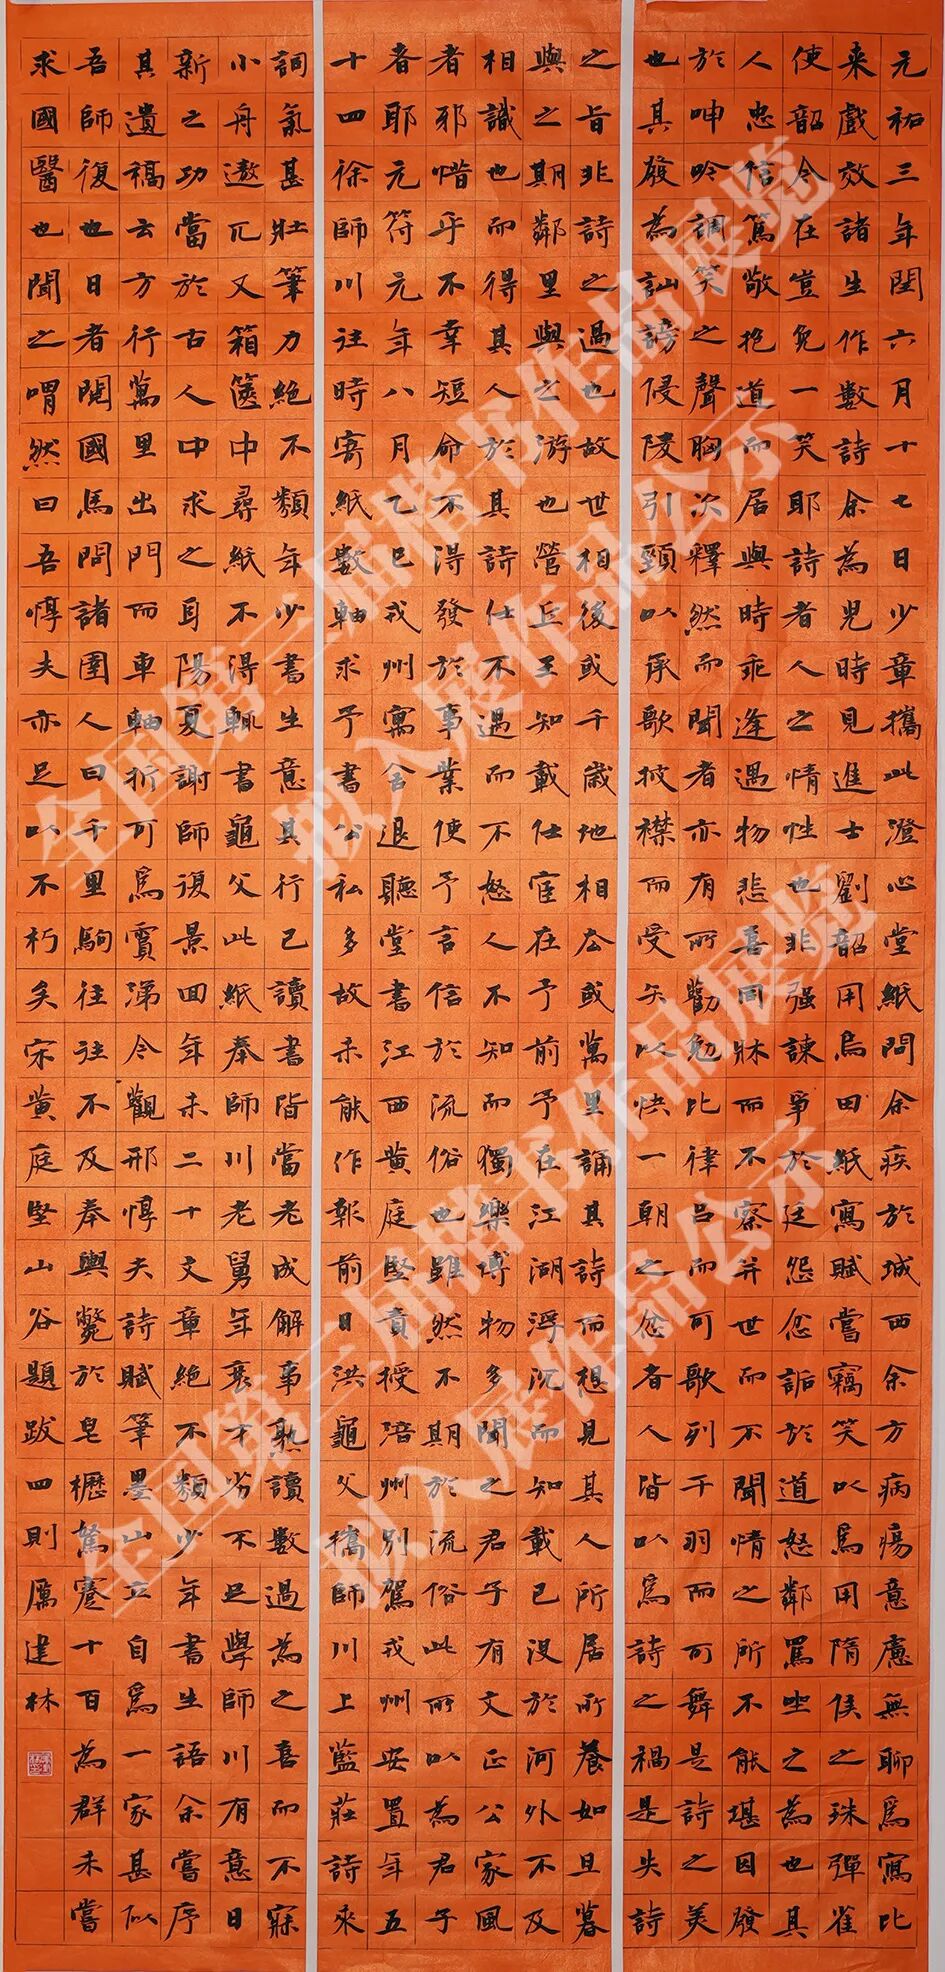 元祐三年閏六月十七日少章攜此澄心堂紙問余疾於城西余方病瘍意慮無聊爲寫比
来戲效諸生作數詩余為兒時見進士劉韶用烏田紙寫賦嘗竊笑以爲用隋侯之珠彈雀
使韶令在豈免一笑耶詩者人之情性也非强諫爭於廷怨忿詬於道怒鄰罵坐之為也其
人忠信篤敬抱道而居與時乖逢遇物悲喜同牀而不察并世而不聞情之所不能堪因發
於呻吟調笑之聲胸次釋然而聞者亦有所勸勉比律呂而可歌列干羽而可舞是詩之美
也其發為訕謗侵陵引頸以承歌披襟而受矢以快一朝之忿者人皆以爲詩之禍是失詩
之旨非詩之過也故世相後或千歲地相去或萬里誦其詩而想見其人所居所養如旦暮
與之期鄰里與之游也營丘王知載仕宦在予前予在江湖浮沉而知載已沒於河外不及
相識也而得其人於其詩仕不遇而不怒人不知而獨樂博物多聞之君子有文正公家風
者邪惜乎不幸短命不得發於事業使予言信於流俗也雖然不期於流俗此所以為君子
者耶元符元年八月乙巳戎州寓舍退聽堂書江西黄庭堅責授涪州別駕戎州安置年五
十四徐師川往時寄紙數軸求予書公私多故未能作報前日洪龜父攜師川上藍莊詩來
詞氣甚壯筆力絕不類年少書生意其行己讀書皆當老成解事熟讀數過為之喜而不寐
小舟遨兀又箱篋中尋紙不得輒書龜父此紙奉師川老舅年衰才劣不足學師川有意日
新之功當於古人中求之耳陽夏謝師復景回年未二十文章絕不類少年書生語余嘗序
其遺稿云方行萬里出門而車軸折可爲霣涕今觀邢惇夫詩賦筆墨山立自爲一家甚似
吾師復也日者閱國馬問諸圉人曰千里駒往往不及奉輿斃於皂櫪駑蹇十百為群未嘗
求國醫也聞之喟然曰吾惇夫亦足以不朽矣宋黃庭堅山谷題跋四則厲建林
全国第三届楷书作品展览
拟入展作品公示
全国第三届楷书作品展览
拟入展作品公示